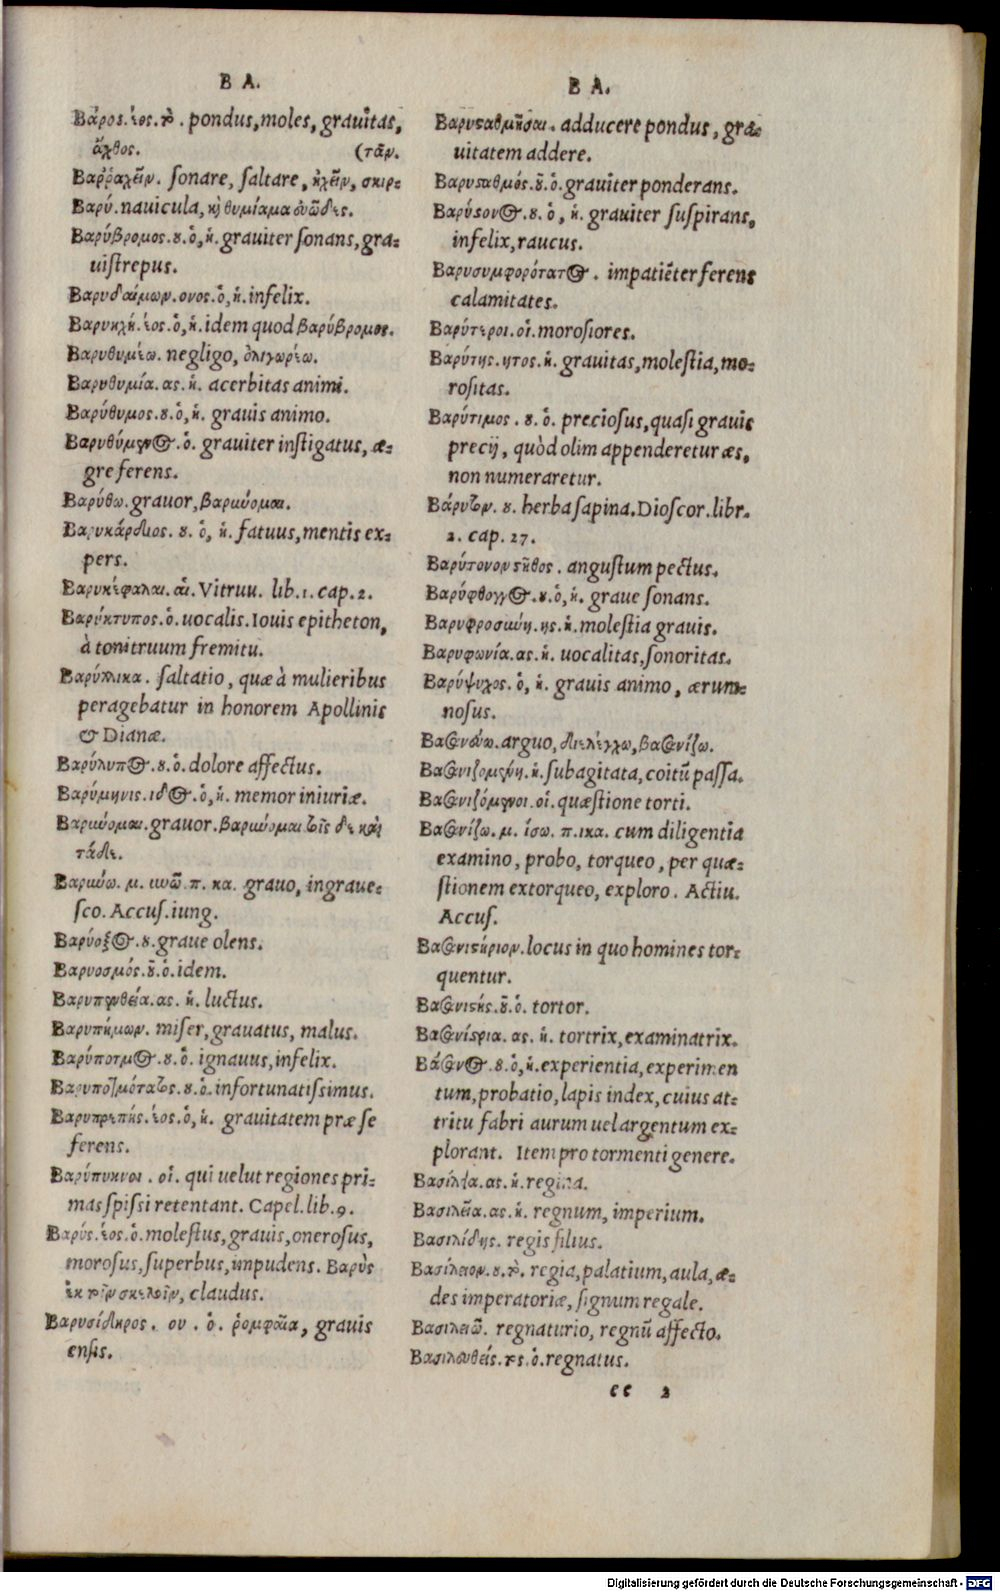 B A.
Βάρος.εος.τὸ. pondus, moles, grauitas,
ἄχθος. (τᾶν.
Βαῤῥαχεῖν. sonare, saltare, ἠχεῖν, σκιρ=
Βαρύ. nauicula, καὶ θυμίαμα εὐῶδες.
Βαρύβρομος.ου.ὁ,ἡ. grauiter sonans, gra=
uistrepus.
Βαρυδαίμων.ονος.ὁ,ἡ. infelix.
Βαρυηχὴ.έος.ὁ,ἡ. idem quod βαρύβρομος.
Βαρυθυμέω. negligo, ὀλιγωρέω.
Βαρυθυμία.ας.ἡ. acerbitas animi.
Βαρύθυμος.ου.ὁ,ἡ. grauis animo.
Βαρυθύμενος.ὁ. grauiter instigatus, æ=
gre ferens.
Βαρύθω. grauor, βαρύνομαι.
Βαρυκάρδιος.ου.ὁ,ἡ. fatuus, mentis ex=
pers.
Βαρυκέφαλαι.αἱ. Vitruu. lib.1. cap.2.
Βαρύκτυπος.ὁ. uocalis. Iouis epitheton,
à tonitruum fremitu.
Βαρύλλικα. saltatio, quæ à mulieribus
peragebatur in honorem Apollinis
& Dianæ.
Βαρύλυπος.ου.ὁ. dolore affectus.
Βαρύμηνις.ιδος.ὁ,ἡ. memor iniuriæ.
Βαρύνομαι. grauor. βαρύνομαι τοῖς δε καὶ
τάδε.
Βαρύνω.μ.υνῶ.π.κα. grauo, ingraue=
sco. Accus. iung.
Βαρύοζος.ου. graue olens.
Βαρυοσμός.οῦ.ὁ. idem.
Βαρυπενθεία.ας.ἡ. luctus.
Βαρυπήμων. miser, grauatus, malus.
Βαρύποτμος.ου.ὁ. ignauus, infelix.
Βαρυποτμότατος.ου.ὁ. infortunatissimus.
Βαρυπρεπής.έος.ὁ,ἡ. grauitatem præ se
ferens.
Βαρύπυκνοι.οἱ. qui uelut regiones pri=
mas spissi retentant. Capel. lib.9.
Βαρύς.έος.ὁ. molestus, grauis, onerosus,
morosus, superbus, impudens. Βαρὺς
ἐκ τοῖν σκελοῖν, claudus.
Βαρυσίδηρος.ου.ὁ. ῥομφαῖα, grauis
ensis.
B A.
Βαρυσταθμῆσαι. adducere pondus, gra=
uitatem addere.
Βαρυσταθμός.οῦ.ὁ. grauiter ponderans.
Βαρύστονος.ου.ὁ,ἡ. grauiter suspirans,
infelix, raucus.
Βαρυσυμφορότατος. impatiẽter ferens
calamitates.
Βαρύτεροι.οἱ. morosiores.
Βαρύτης.ητος.ἡ. grauitas, molestia, mo=
rositas.
Βαρύτιμος.ου.ὁ. preciosus, quasi grauis
precij, quòd olim appenderetur æs,
non numeraretur.
Βάρυτον.ου. herba sapina. Dioscor. libr.
2. cap. 27.
Βαρύτονον στῆθος. angustum pectus.
Βαρύφθογγος.ου.ὁ,ἡ. graue sonans.
Βαρυφροσύνη.ης.ἡ. molestia grauis.
Βαρυφωνία.ας.ἡ. uocalitas, sonoritas.
Βαρύψυχος.ὁ,ἡ. grauis animo, ærum=
nosus.
Βασανάω. arguo, διελέγχω, βασανίζω.
Βασανιζομένη.ἡ. subagitata, coitũ passa.
Βασανιζόμενοι.οἱ. quæstione torti.
Βασανίζω.μ.ίσω.π.ικα. cum diligentia
examino, probo, torqueo, per quæ=
stionem extorqueo, exploro. Actiu.
Accus.
Βασανιστήριον. locus in quo homines tor=
quentur.
Βασανιστής.οῦ.ὁ. tortor.
Βασανίστρια.ας.ἡ. tortrix, examinatrix.
Βάσανος.ου.ὁ,ἡ. experientia, experimen
tum, probatio, lapis index, cuius at=
tritu fabri aurum uel argentum ex=
plorant. Item pro tormenti genere.
Βασίλεια.ας.ἡ. regina.
Βασιλεῖα.ας.ἡ. regnum, imperium.
Βασιλείδης. regis filius.
Βασίλειον.ου.τὸ. regia, palatium, aula, æ=
des imperatoriæ, signum regale.
Βασιλειῶ. regnaturio, regnũ affecto.
Βασιλευθείς.τος.ὁ. regnatus.
cc 2
Digitalisierung gefördert durch die Deutsche Forschungsgemeinschaft - DFG